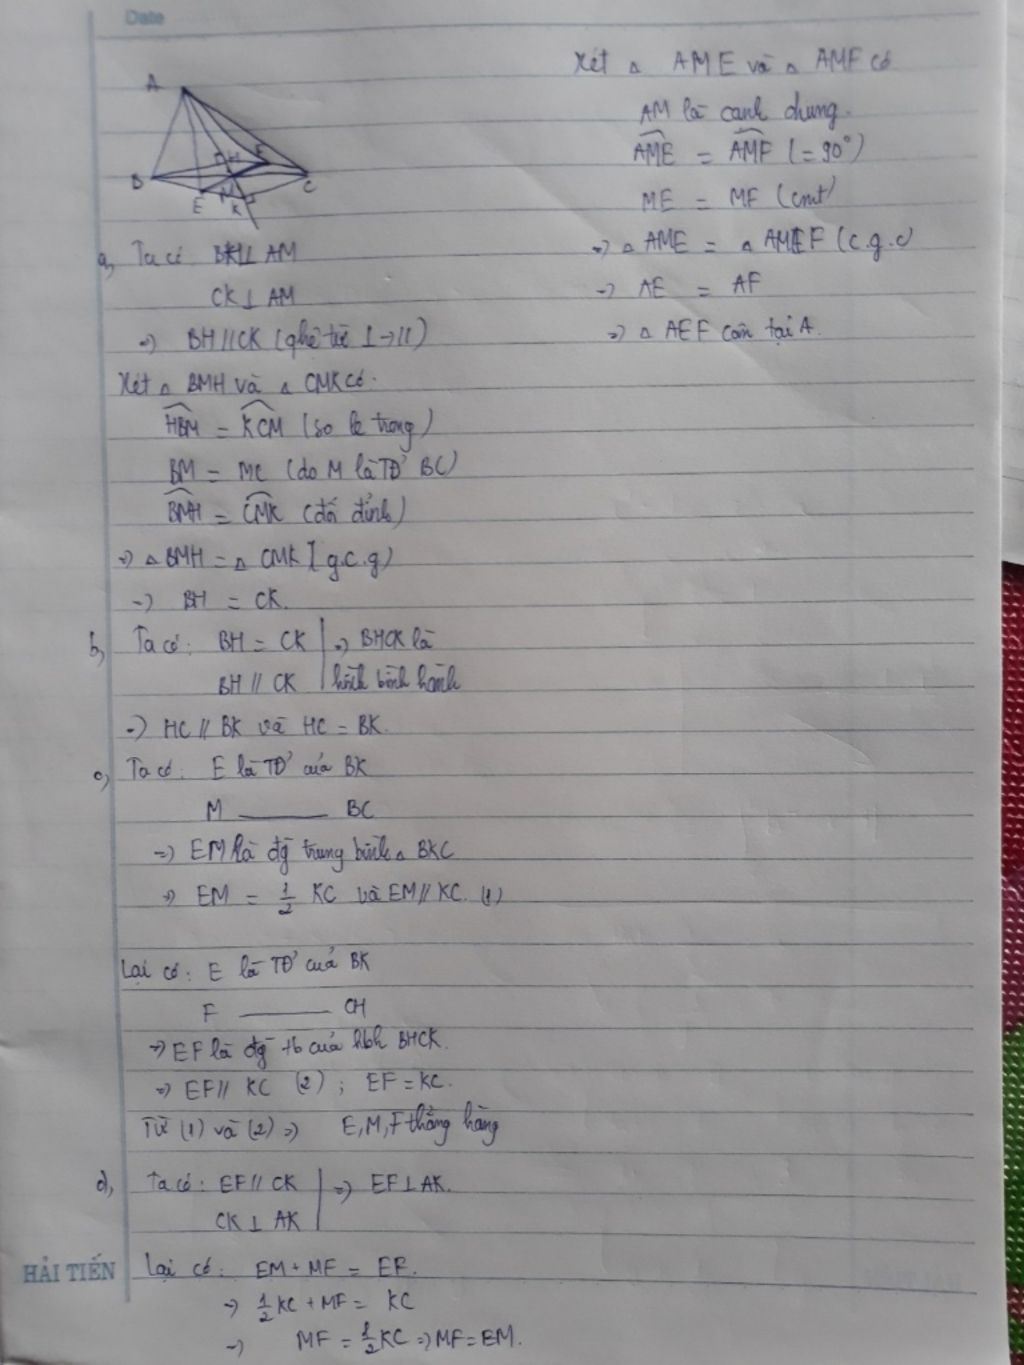 Date
A
B
H
F
E
M
K
C
a, Ta có BH⊥ AM
CK ⊥ AM
=> BH // CK (qhệ từ ⊥ -> //)
Xét △ BMH và △ CMK có:
HBM = KCM (so le trong)
BM = MC (do M là TĐ' BC)
BMH = CMK (đối đỉnh)
=> △ BMH = △ CMK (g.c.g)
=> BH = CK.
b, Ta có: BH = CK | => BHCK là
BH // CK | hình bình hành
=> HC // BK và HC = BK.
c, Ta có: E là TĐ' của BK
M ——— BC
=> EM là đg̃ trung bình △ BKC
=> EM = 1/2 KC và EM // KC. (1)
Lại có: E là TĐ' của BK
F ——— CH
=> EF là đg̃ tb của hbh BHCK.
=> EF // KC (2) ; EF = KC.
Từ (1) và (2) => E, M, F thẳng hàng
d, Ta có: EF // CK | => EF ⊥ AK.
CK ⊥ AK
Lại có: EM + MF = EF.
=> 1/2 KC + MF = KC
=> MF = 1/2 KC => MF = EM.
HẢI TIẾN
Xét △ AME và △ AMF có
AM là cạnh chung.
AME = AMF (= 90°)
ME = MF (cmt)
=> △ AME = △ AMF (c.g.c)
=> AE = AF
=> △ AEF cân tại A.